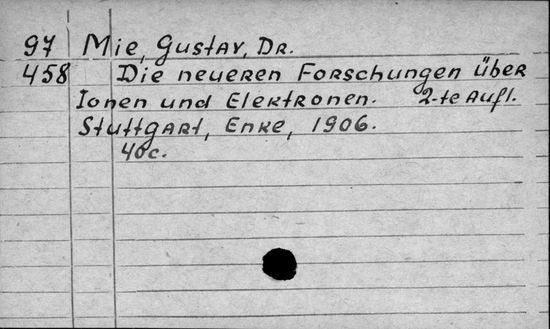 97 Mie, Gustav, Dr.
458 Die neueren Forschungen über
Ionen und Elektronen. 2-te Aufl.
Stuttgart, Enke, 1906.
40c.